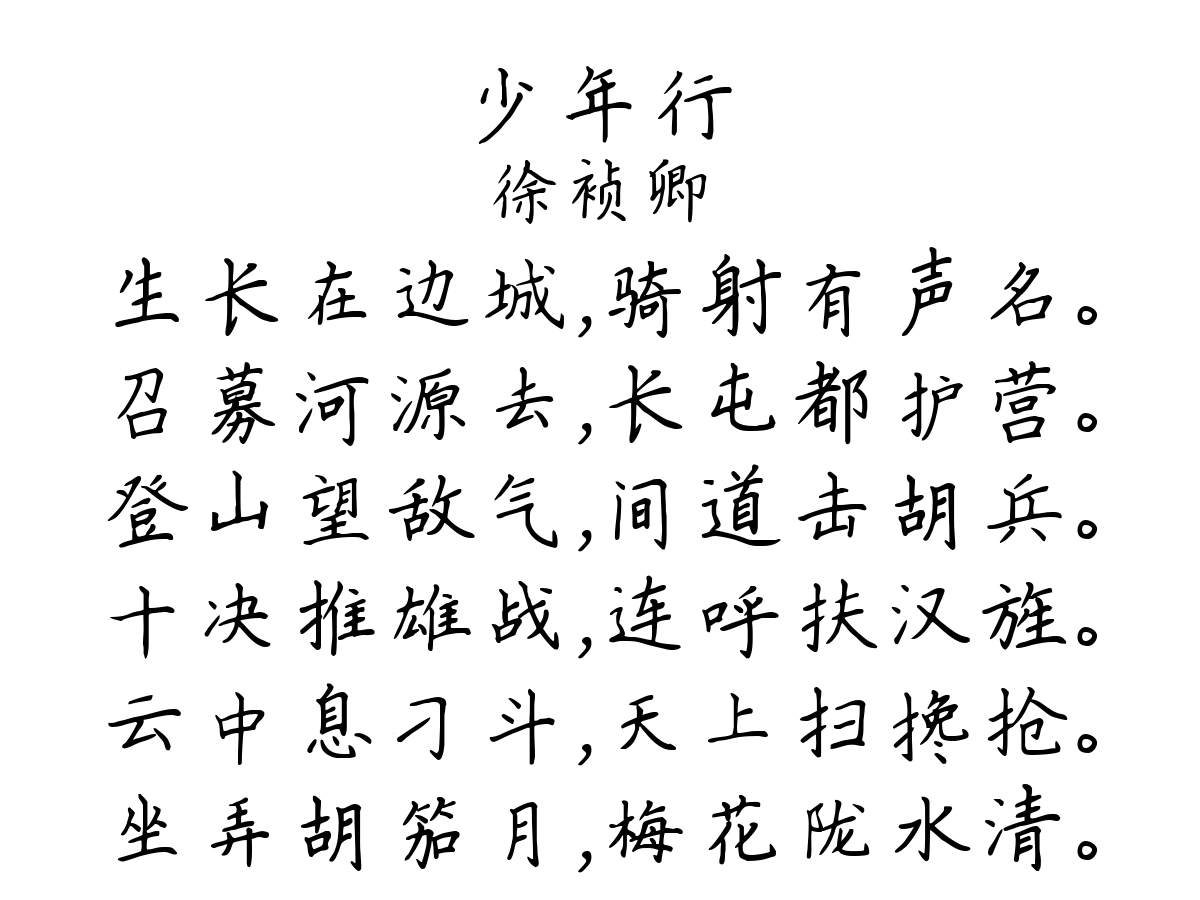 少年行
徐祯卿
生长在边城,骑射有声名。
召募河源去,长屯都护营。
登山望敌气,间道击胡兵。
十决推雄战,连呼扶汉旌。
云中息刁斗,天上扫搀抢。
坐弄胡笳月,梅花陇水清。